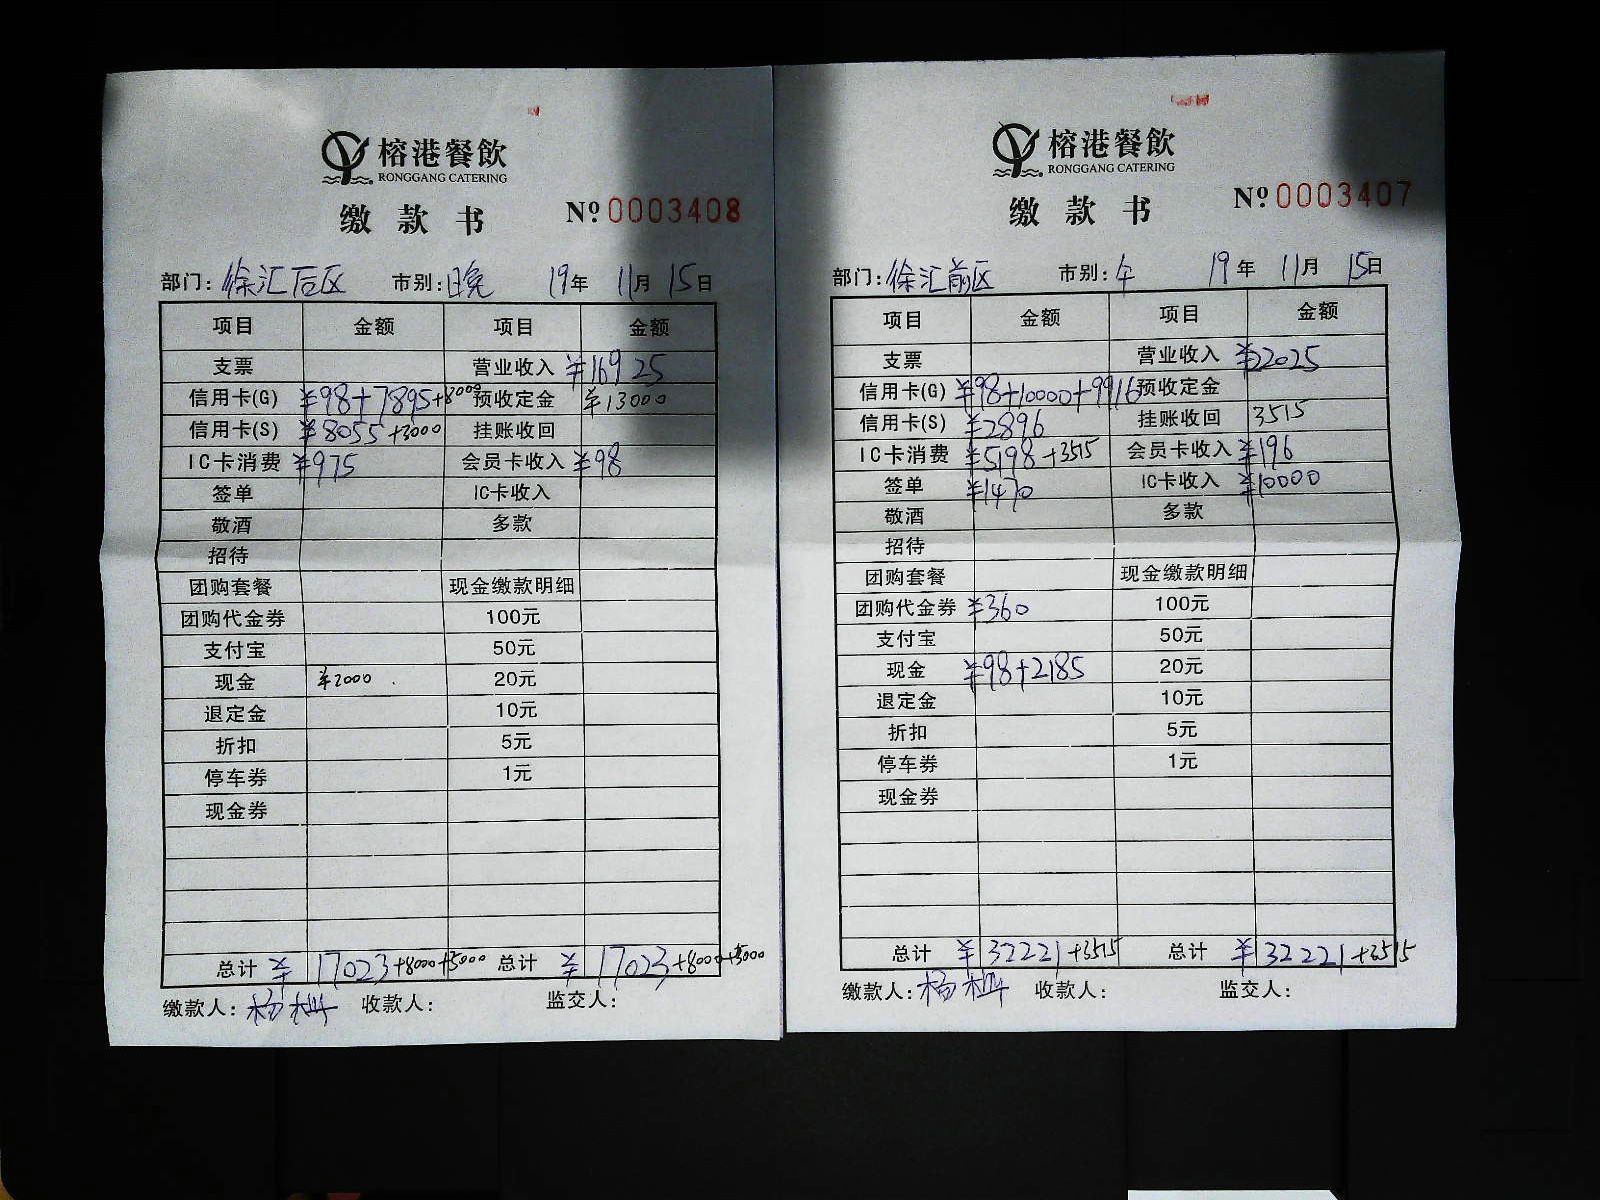 榕港餐飲
RONGGANG CATERING
缴款书 Nº 0003408
部门: 徐汇后区 市别: 晚 19年 11月 15日
项目 金额 项目 金额
支票 营业收入 ¥16925
信用卡(G) ¥98+7895+8000 预收定金 ¥13000
信用卡(S) ¥8055+3000 挂账收回
IC卡消费 ¥975 会员卡收入 ¥98
签单 IC卡收入
敬酒 多款
招待
团购套餐 现金缴款明细
团购代金券 100元
支付宝 50元
现金 ¥2000 20元
退定金 10元
折扣 5元
停车券 1元
现金券
总计 ¥17023+8000+5000 总计 ¥17023+8000+5000
缴款人: 杨 收款人: 监交人:
榕港餐飲
RONGGANG CATERING
缴款书 Nº 0003407
部门: 徐汇前区 市别: 午 19年 11月 15日
项目 金额 项目 金额
支票 营业收入 ¥22025
信用卡(G) ¥98+10000+9916 预收定金
信用卡(S) ¥2896 挂账收回 3515
IC卡消费 ¥5198+3515 会员卡收入 ¥196
签单 ¥1470 IC卡收入 ¥10000
敬酒 多款
招待
团购套餐 现金缴款明细
团购代金券 ¥360 100元
支付宝 50元
现金 ¥98+2185 20元
退定金 10元
折扣 5元
停车券 1元
现金券
总计 ¥32221+3515 总计 ¥32221+3515
缴款人: 杨 收款人: 监交人: